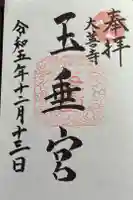 奉拝
大善寺
玉垂宮
令和五年十二月十三日